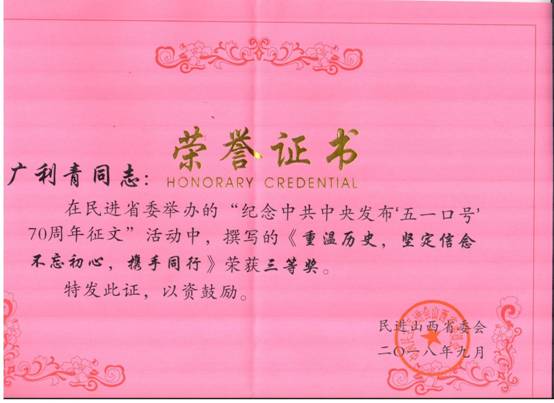 荣誉证书
HONORARY CREDENTIAL
广利青同志：
在民进省委举办的“纪念中共中央发布‘五一口号’
70周年征文”活动中，撰写的《重温历史，坚定信念
不忘初心，携手同行》荣获三等奖。
特发此证，以资鼓励。
民进山西省委会
二〇一八年九月